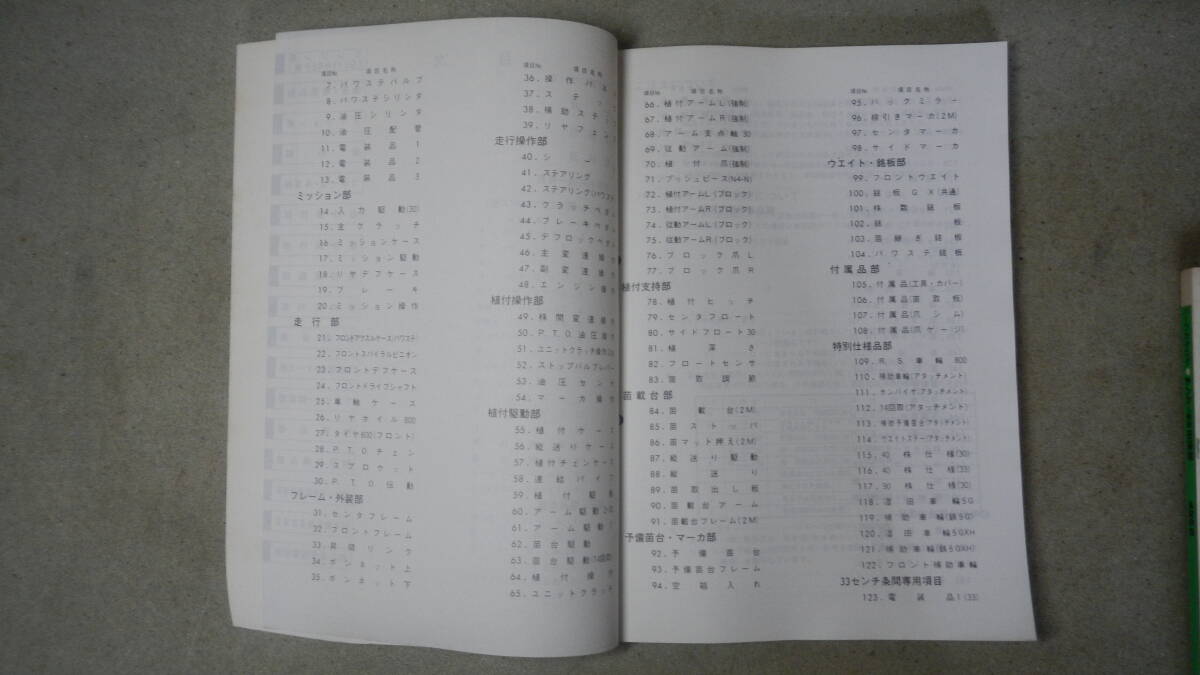 項目No. 項目名称
7. パワステバルブ
8. パワステシリンダ
9. 油圧シリンダ
10. 油圧配管
11. 電装品 1
12. 電装品 2
13. 電装品 3
ミッション部
14. 入力駆動(30)
15. 主クラッチ
16. ミッションケース
17. ミッション駆動
18. リヤデフケース
19. ブレーキ
20. ミッション操作
走行部
21. フロントアクスルケース(パワステ)
22. フロントスパイラルピニオン
23. フロントデフケース
24. フロントドライブシャフト
25. 車軸ケース
26. リヤホイル800
27. タイヤ600(フロント)
28. P.T.Oチェン
29. スプロケット
30. P.T.O伝動
フレーム・外装部
31. センタフレーム
32. フロントフレーム
33. 昇降リンク
34. ボンネット上
35. ボンネット下
項目No. 項目名称
36. 操作パネ
37. ステッ
38. 補助ステッ
39. リヤフェン
走行操作部
40. シ
41. ステアリング
42. ステアリング(パワステ
43. クラッチペダ
44. ブレーキペダ
45. デフロックペダ
46. 主変速操
47. 副変速操
48. エンジン操
植付操作部
49. 株間変速操
50. P.T.O油圧操
51. ユニットクラッチ操作
52. ストップバルブレバー
53. 油圧セン
54. マーカ操
植付駆動部
55. 植付ケー
56. 縦送りケー
57. 植付チェンケー
58. 連結パイ
59. 植付駆
60. アーム駆動
61. アーム駆動
62. 苗台駆動
63. 苗台駆動
64. 植付操
65. ユニットクラッ
項目No. 項目名称
66. 植付アームL(強制)
67. 植付アームR(強制)
68. アーム支点軸30
69. 従動アーム(強制)
70. 植付爪(強制)
71. プッシュピース(N4-N)
72. 植付アームL(ブロック)
73. 植付アームR(ブロック)
74. 従動アームL(ブロック)
75. 従動アームR(ブロック)
76. ブロック爪L
77. ブロック爪R
植付支持部
78. 植付ヒッチ
79. センタフロート
80. サイドフロート30
81. 植深さ
82. フロートセンサ
83. 苗取調節
苗載台部
84. 苗載台(2M)
85. 苗ストッパ
86. 苗マット押え(2M)
87. 縦送り駆動
88. 縦送り
89. 苗取出し板
90. 苗載台アーム
91. 苗載台フレーム(2M)
予備苗台・マーカ部
92. 予備苗台
93. 予備苗台フレーム
94. 空箱入れ
項目No. 項目名称
95. バックミラー
96. 線引きマーカ(2M)
97. センタマーカ
98. サイドマーカ
ウエイト・銘板部
99. フロントウエイト
100. 銘板GX(共通)
101. 株数銘板
102. 銘板
103. 苗継ぎ銘板
104. パワステ銘板
付属品部
105. 付属品(工具・カバー)
106. 付属品(苗取板)
107. 付属品(爪シム)
108. 付属品(爪ゲージ)
特別仕様品部
109. R.S.車輪 800
110. 補助車輪(アタッチメント)
111. サンバイザ(アタッチメント)
112. 14回取(アタッチメント)
113. 補助予備苗台(アタッチメント)
114. ウエイトステー(アタッチメント)
115. 40株仕様(30)
116. 40株仕様(33)
117. 30株仕様(30)
118. 湿田車輪5G
119. 補助車輪(鉄5G)
120. 湿田車輪5GXH
121. 補助車輪(鉄5GXH)
122. フロント補助車輪
33センチ条間専用項目
123. 電装品1(33)